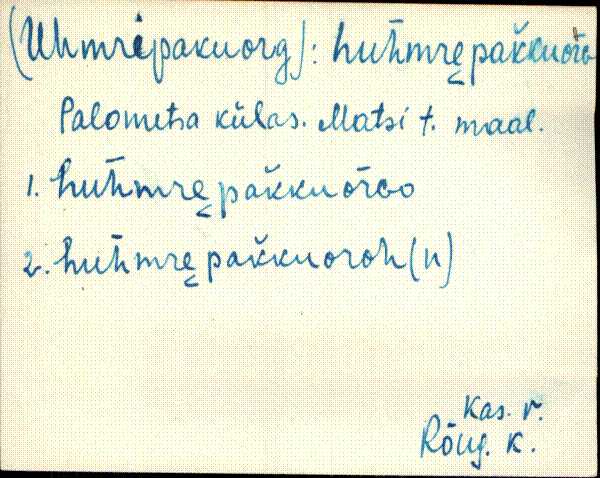 (Uhmripakuorg): huhmrępak̆kuõro
Palometsa külas. Matsi t. maal.
1. huhmrępak̆kuõroo
2. huhmrępak̆kuoroh(n)
Kas. v.
Rõug. k.